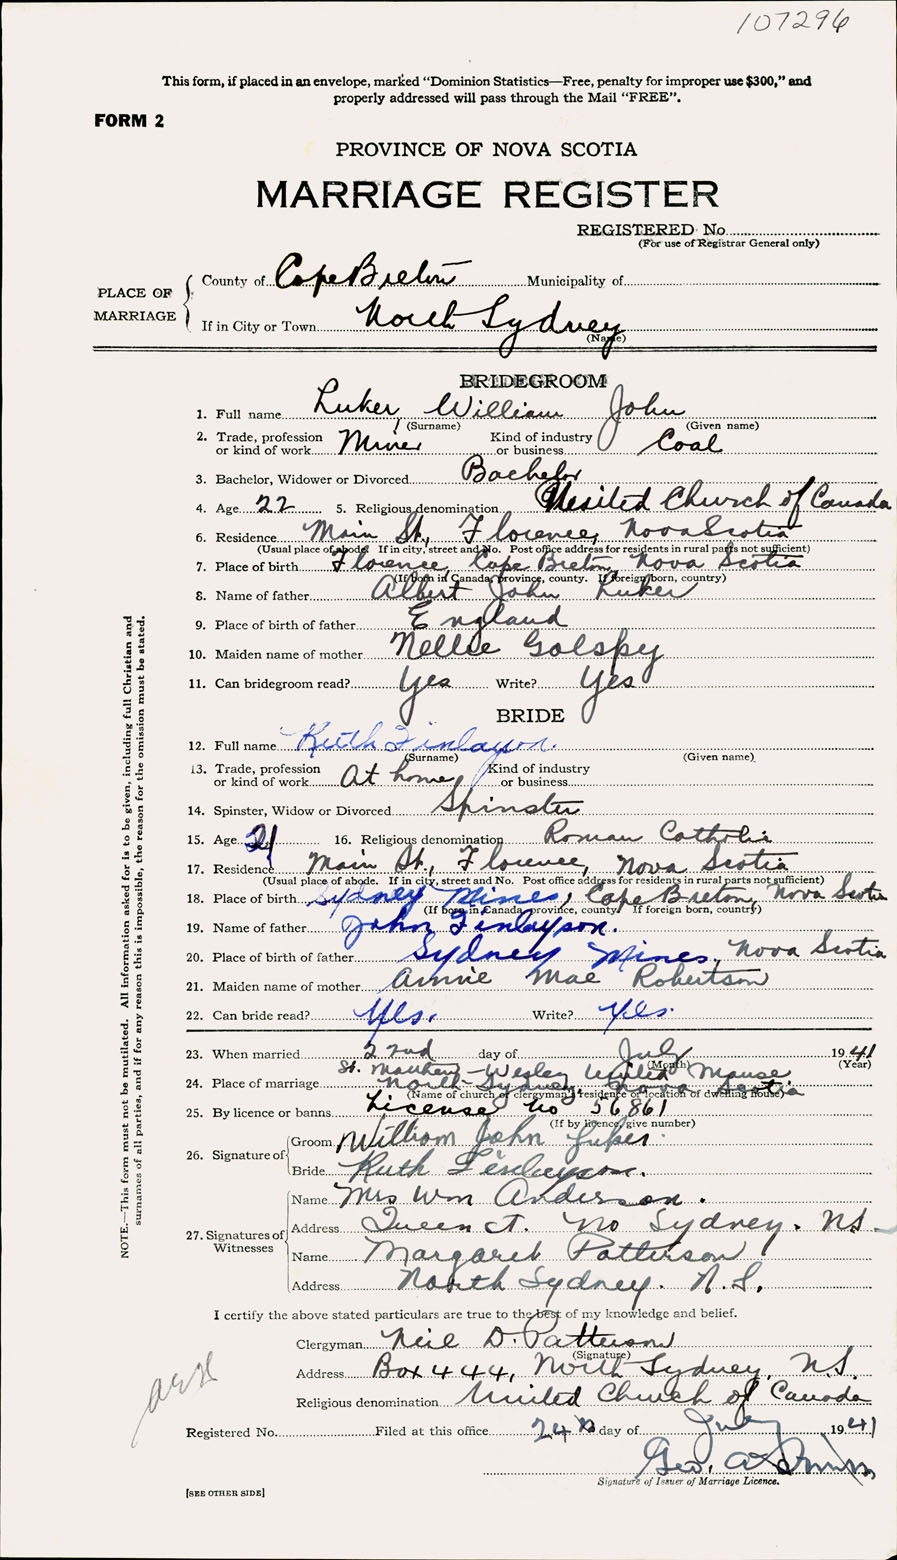 107296
This form, if placed in an envelope, marked "Dominion Statistics—Free, penalty for improper use $300," and
properly addressed will pass through the Mail "FREE".
FORM 2
PROVINCE OF NOVA SCOTIA
MARRIAGE REGISTER
REGISTERED No.
(For use of Registrar General only)
PLACE OF MARRIAGE
County of Cape Breton Municipality of
If in City or Town North Sydney
(Name)
BRIDEGROOM
1. Full name Luker, William John
(Surname) (Given name)
2. Trade, profession or kind of work Miner Kind of industry or business Coal
3. Bachelor, Widower or Divorced Bachelor
4. Age 22 5. Religious denomination United Church of Canada
6. Residence Main St., Florence, Nova Scotia
(Usual place of abode. If in city, street and No. Post office address for residents in rural parts not sufficient)
7. Place of birth Florence, Cape Breton, Nova Scotia
(If born in Canada, province, county. If foreign born, country)
8. Name of father Albert John Luker
9. Place of birth of father England
10. Maiden name of mother Nellie Golspy
11. Can bridegroom read? Yes Write? Yes
BRIDE
12. Full name Ruth Finlayson.
(Surname) (Given name)
13. Trade, profession or kind of work At home Kind of industry or business
14. Spinster, Widow or Divorced Spinster
15. Age 21 16. Religious denomination Roman Catholic
17. Residence Main St., Florence, Nova Scotia
(Usual place of abode. If in city, street and No. Post office address for residents in rural parts not sufficient)
18. Place of birth Sydney Mines, Cape Breton, Nova Scotia
(If born in Canada, province, county. If foreign born, country)
19. Name of father John Finlayson.
20. Place of birth of father Sydney Mines, Nova Scotia
21. Maiden name of mother Annie Mae Robertson
22. Can bride read? Yes. Write? Yes.
23. When married 22nd day of July 1941
(Month) (Year)
St. Matthew-Wesley United Manse
24. Place of marriage North Sydney, Nova Scotia
(Name of church or clergyman's residence or location of dwelling house)
25. By licence or banns License No 56861
(If by licence, give number)
26. Signature of
Groom William John Luker.
Bride Ruth Finlayson.
27. Signatures of Witnesses
Name Mrs Wm Anderson.
Address Queen St. No Sydney. NS
Name Margaret Patterson
Address North Sydney. N.S.
I certify the above stated particulars are true to the best of my knowledge and belief.
Clergyman Neil D. Patterson
(Signature)
Address Box 444, North Sydney, N.S.
Religious denomination United Church of Canada
Registered No. Filed at this office 24th day of July 1941
Geo. A.
Signature of Issuer of Marriage Licence.
[SEE OTHER SIDE]
NOTE.—This form must not be mutilated. All information asked for is to be given, including full Christian and
surnames of all parties, and if for any reason this is impossible, the reason for the omission must be stated.